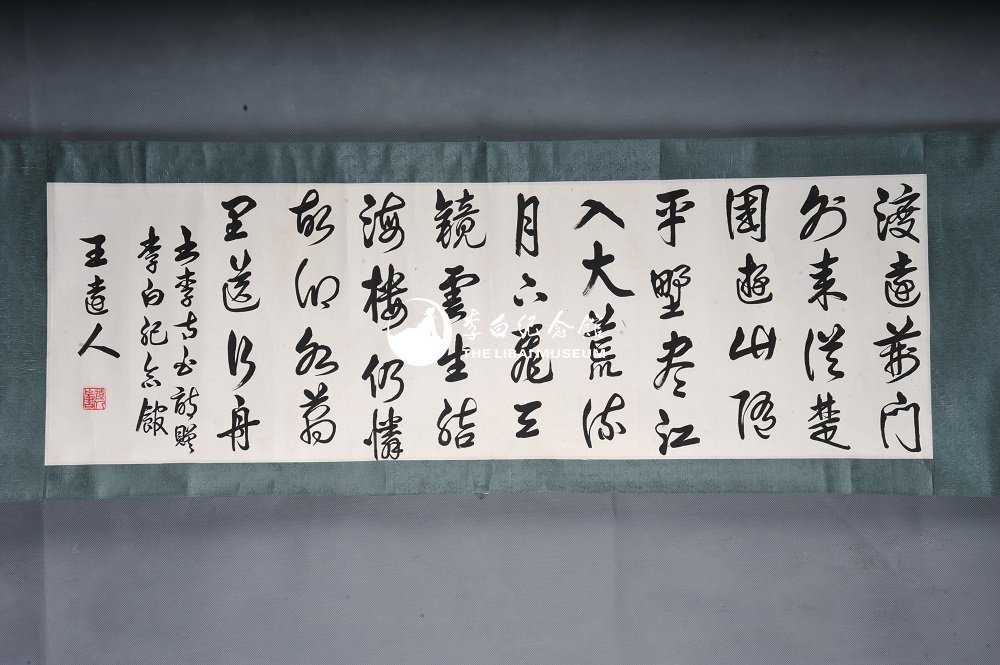 渡遠荊門
外来從楚
國遊山隨
平野盡江
入大荒流
月下飛天
鏡雲生結
海樓仍憐
故鄉水萬
里送行舟
书李太白詩贈
李白纪念館
王遠人
李白纪念館
THE LIBAI MUSEUM